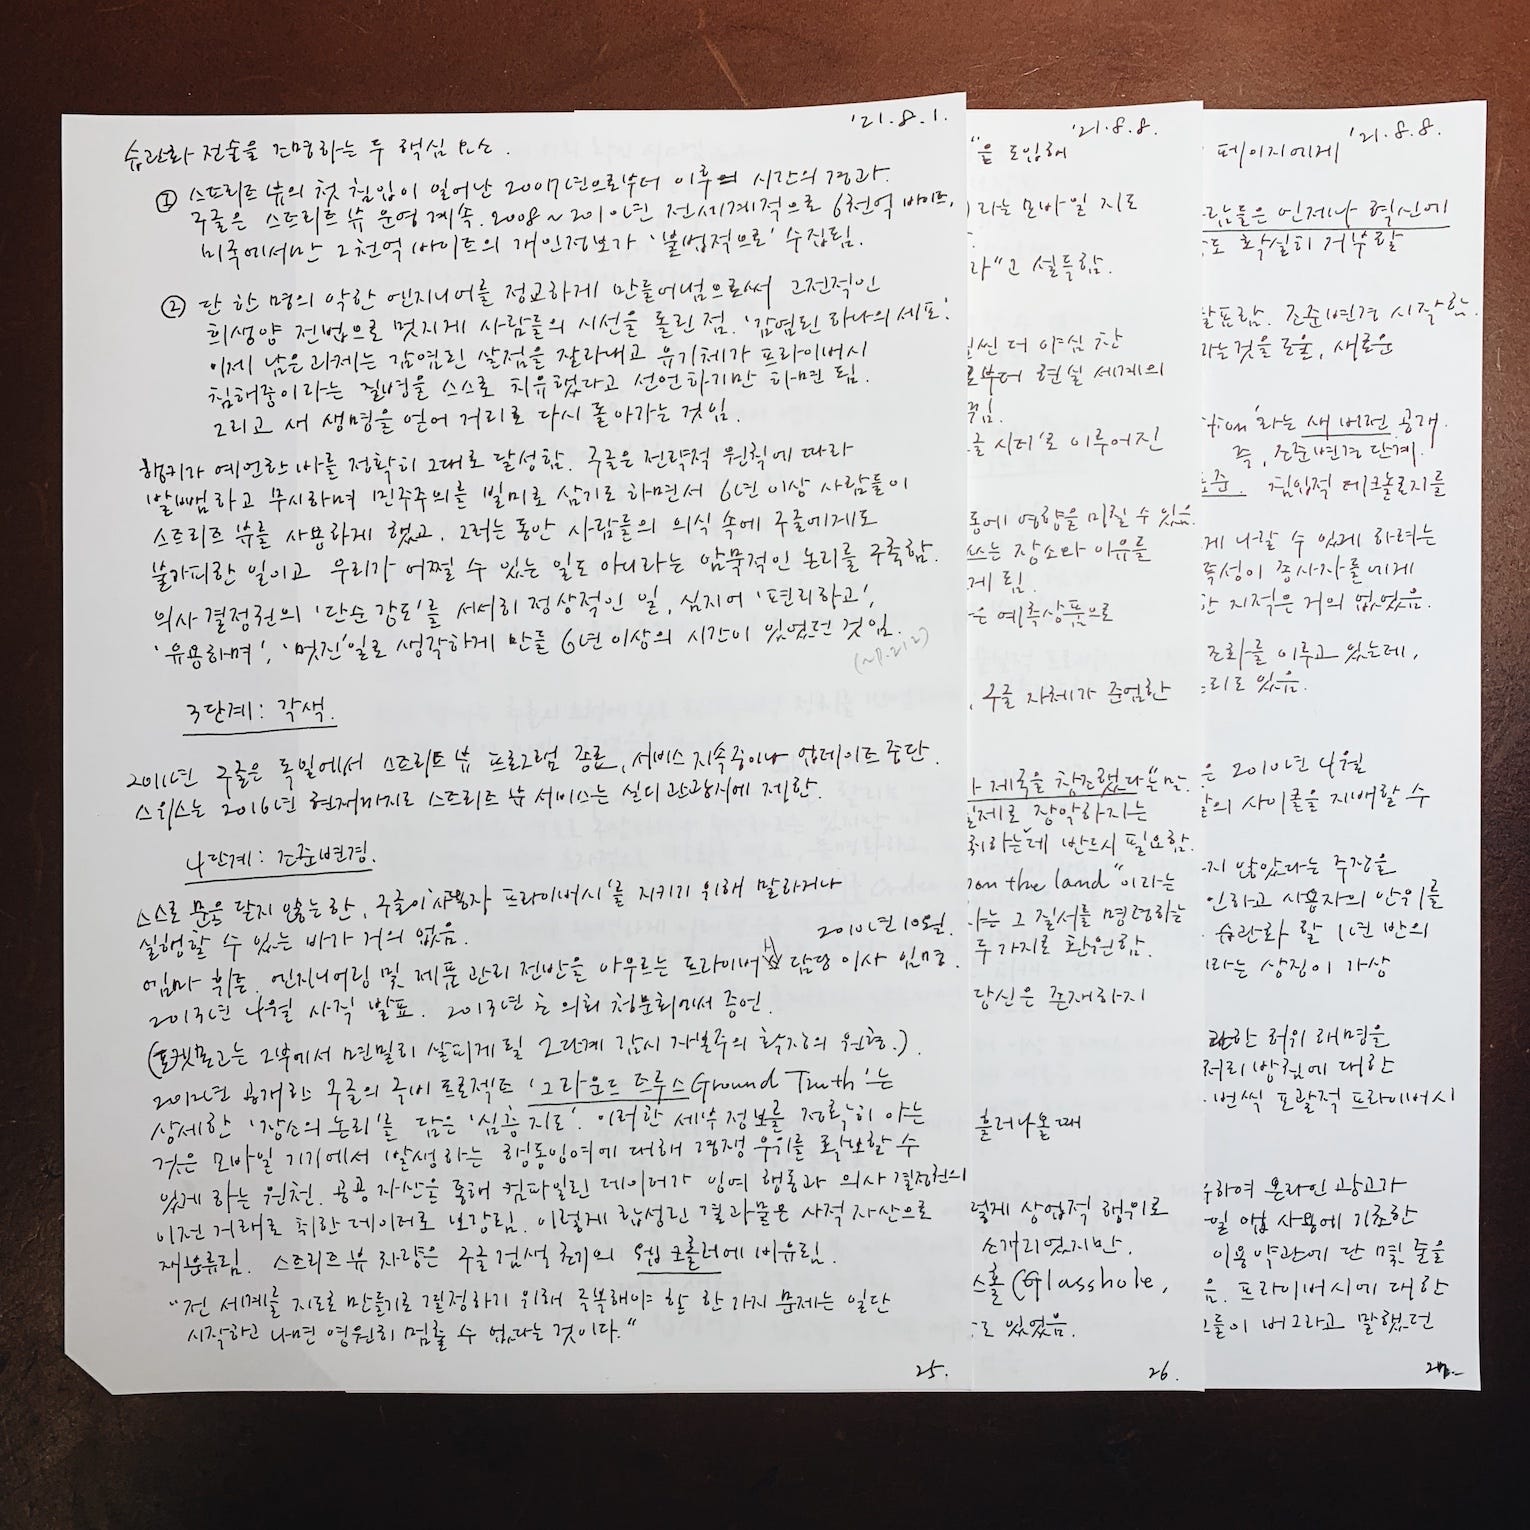 '21.8.1.
습관화 전술을 견명하는 두 핵심 요소.
① 스트리트 뷰의 첫 침입이 일어난 2007년으로부터 이후 시간의 경과.
구글은 스트리트 뷰 운영 계속. 2008~2010년 전세계적으로 6천억 바이트,
미국에서만 2천억 바이트의 개인정보가 '불법적으로' 수집됨.
② 단 한 명의 악한 엔지니어를 정교하게 만들어냄으로써 고전적인
희생양 전법으로 멋지게 사람들의 시선을 돌린 점. '감염된 하나의 세포.'
이제 남은 과제는 감염된 살점을 잘라내고 유기체가 프라이버시
침해증이라는 질병을 스스로 치유했다고 선언하기만 하면 됨.
그리고 새 생명을 얻어 거리로 다시 돌아가는 것임.
행키가 예언한 바를 정확히 그대로 달성함. 구글은 전략적 원칙에 따라
발뺌하고 무시하며 민주주의를 빌미로 삼기로 하면서 6년 이상 사람들이
스트리트 뷰를 사용하게 했고, 그러는 동안 사람들의 의식 속에 구글에게도
불가피한 일이고 우리가 어쩔 수 있는 일도 아니라는 암묵적인 논리를 구축함.
의사 결정권의 '단순 강도'를 서서히 정상적인 일, 심지어 '편리하고',
'유용하며', '멋진'일로 생각하게 만들 6년 이상의 시간이 있었던 것임.
(~p.212)
3단계: 각색.
2011년 구글은 독일에서 스트리트 뷰 프로그램 종료, 서비스 지속중이나 업데이트 중단.
스위스는 2016년 현재까지도 스트리트 뷰 서비스는 실외 관광지에 제한.
4단계: 조준변경.
스스로 문을 닫지 않는 한, 구글이 '사용자 프라이버시'를 지키기 위해 말하거나
실행할 수 있는 바가 거의 없음.
2010년 10월.
엘마 휘튼. 엔지니어링 및 제품 관리 전반을 아우르는 프라이버시 담당 이사 임명.
2013년 4월 사직 발표. 2013년 초 의회 청문회에서 증언.
(포켓몬고는 2부에서 면밀히 살피게 될 2단계 감시 자본주의 확장의 원형.)
2012년 공개한 구글의 극비 프로젝트 '그라운드 트루스Ground Truth'는
상세한 '장소의 논리'를 담은 '심층 지도'. 이러한 세부 정보를 정확히 아는
것은 모바일 기기에서 발생하는 행동잉여에 대해 경쟁 우위를 확보할 수
있게 하는 원천. 공공 자산을 통해 컴파일된 데이터가 잉여 행동과 의사 결정권의
이전 거래로 취한 데이터로 보강됨. 이렇게 합성된 결과물은 사적 자산으로
재분류됨. 스트리트 뷰 차량은 구글 검색 초기의 웹 크롤러에 비유됨.
"전 세계를 지도로 만들기로 결정하기 위해 극복해야 할 한 가지 문제는 일단
시작하고 나면 영원히 멈출 수 없다는 것이다."
25.
'21.8.8.
"을 도입해
라는 모바일 지도
라"고 설득함.
씬 더 야심 찬
로부터 현실 세계의
글 시티'로 이루어진
동에 영향을 미칠 수 있음
쓰는 장소와 이유를
게 됨.
은 예측상품으로
, 구글 자체가 준엄한
가 제국을 창조했다"는 말.
실제로 장악하지는
취하는데 반드시 필요함.
on the land"이라는
나는 그 질서를 명령하는
두 가지로 환원함.
당신은 존재하지
흘러나올 때
렇게 상업적 행위로
소개되었지만.
스홀(Glasshole,
고 있었음.
26.
'21.8.8.
페이지에게
사람들은 언제나 혁신에
도 확실히 거부할
발표함. 조준변경 시작함.
라는 것을 도울, 새로운
tion'라는 새 버전 공개.
즉, 조준변경 단계.
표준. 침입적 테크놀로지를
게 나갈 수 있게 하려는
특성이 종사자들에게
한 지적은 거의 없었음.
조화를 이루고 있는데,
되고 있음.
은 2010년 4월
발의 사이클을 지배할 수
지 않았다는 주장을
인하고 사용자의 안위를
습관화 할 1년 반의
라는 상징이 가상
관한 허위 해명을
처리 방침에 대한
번씩 포괄적 프라이버시
하여 온라인 광고가
일 앱 사용에 기초한
이용 약관에 단 몇 줄을
음. 프라이버시에 대한
그들이 버그라고 말했던